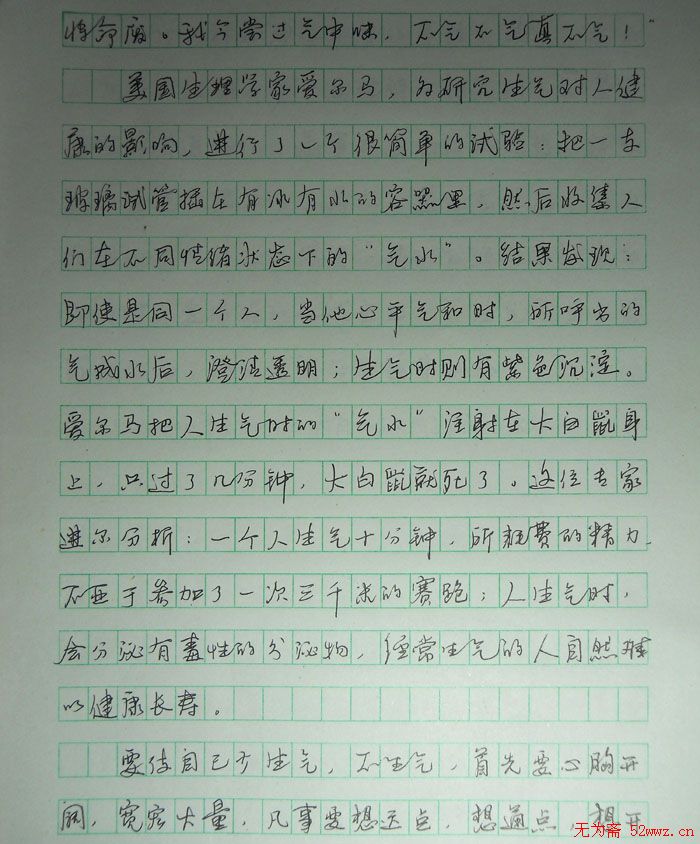 将命废。我今尝过气中味，不气不气真不气！”
美国生理学家爱尔马，为研究生气对人健
康的影响，进行了一个很简单的试验：把一支
玻璃试管插在有冰有水的容器里，然后收集人
们在不同情绪状态下的“气水”。结果发现：
即使是同一个人，当他心平气和时，所呼出的
气成水后，澄清透明；生气时则有紫色沉淀。
爱尔马把人生气时的“气水”注射在大白鼠身
上，只过了几分钟，大白鼠就死了。这位专家
进尔分析：一个人生气十分钟，所耗费的精力，
不亚于参加了一次三千米的赛跑；人生气时，
会分泌有毒性的分泌物，经常生气的人自然难
以健康长寿。
要使自己少生气，不生气，首先要心胸开
阔，宽宏大量，凡事要想远点，想通点，想开
无为斋 52wwz.cn